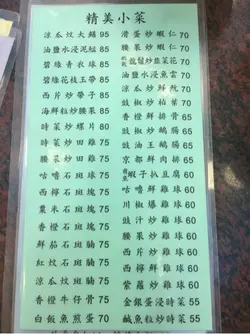 精美小菜
涼瓜炆大鱔 95
油鹽水浸泥鯭 85
碧綠青衣球 85
碧綠花枝玉帶 85
西片炒子帶 85
海鮮粒炒腰果 85
時菜炒螺片 80
時菜炒田雞 75
腰果炒田雞 75
咕嚕石斑塊 75
西檸石斑塊 75
粟米石斑塊 75
香橙石斑腩 75
鮮茄石斑腩 75
紅炆石斑腩 75
涼瓜炆斑腩 75
香橙牛仔骨 75
白飯魚煎蛋 70
滑蛋炒蝦仁 70
腰果炒蝦仁 70
炒韮菜花 70
油鹽水浸魚雲 70
涼瓜炒鮮魷 70
豉椒炒柏葉 70
香橙鮮排骨 65
豉椒炒鵝腸 65
豉油王鵝腸 65
京都鮮肉排 65
蝦子扒豆腐 60
咕嚕鮮雞球 60
川椒爆雞球 60
豉汁炒雞球 60
西片炒雞球 60
西檸鮮雞球 60
紫蘿炒雞球 60
金銀蛋浸時菜 55
鹹魚粒炒時菜 55